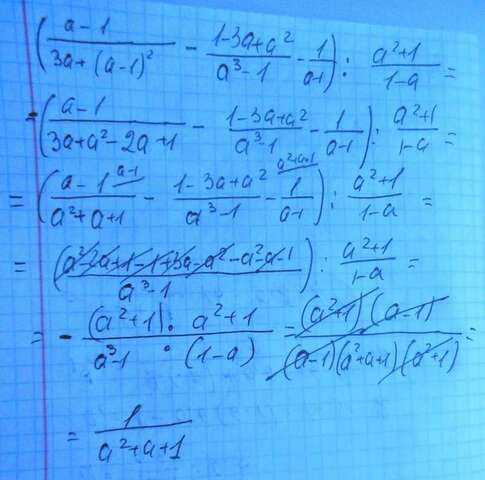 ((a-1)/(3a+(a-1)²) - (1-3a+a²)/(a³-1) - 1/(a-1)) : (a²+1)/(1-a) =
= ((a-1)/(3a+a²-2a+1) - (1-3a+a²)/(a³-1) - 1/(a-1)) : (a²+1)/(1-a) =
= ((a-1)/(a²+a+1) ^(a-1) - (1-3a+a²)/(a³-1) - 1/(a-1) ^(a²+a+1)) : (a²+1)/(1-a) =
= ((a²-2a+1-1+3a-a²-a²-a-1)/(a³-1)) : (a²+1)/(1-a) =
= - (a²+1)/(a³-1) : (a²+1)/(1-a) = ((a²+1)(a-1))/((a-1)(a²+a+1)(a²+1)) =
= 1/(a²+a+1)